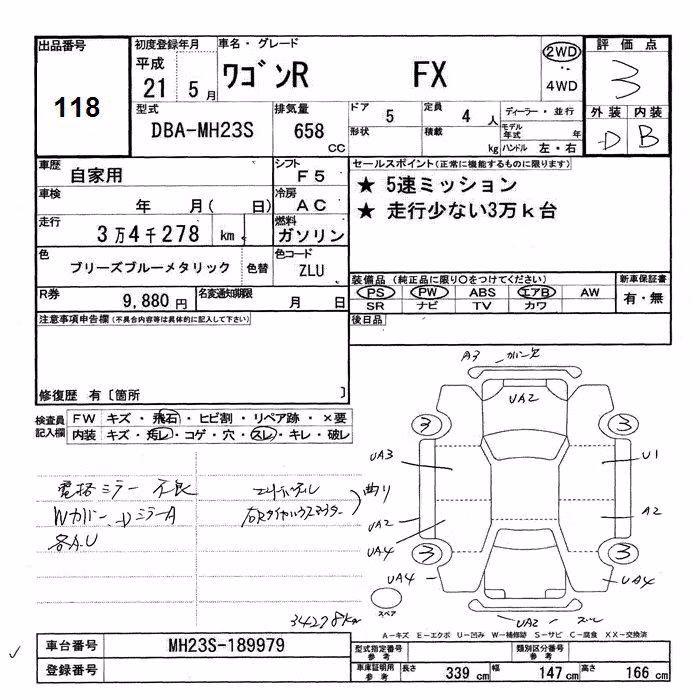 出品番号 118
初度登録年月 平成 21 5月
車名・グレード ワゴンR FX
2WD 4WD
評価点 3
外装 D 内装 B
型式 DBA-MH23S
排気量 658 CC
ドア 5 定員 4 人
形状 積載 kg
ディーラー・並行
モデル年式 年
ハンドル 左・右
車歴 自家用
シフト F5
車検 年 月( 日)
冷房 AC
走行 3万4千278 km
燃料 ガソリン
色 ブリーズブルーメタリック 色替
色コード ZLU
R券 9,880円 名変通知期限 月 日
セールスポイント(正常に機能するものに限ります)
★ 5速ミッション
★ 走行少ない3万k台
装備品(純正品に限り○をつけてください) 新車保証書
PS PW ABS エアB AW 有・無
SR ナビ TV カワ
後日品
注意事項申告欄(不具合内容等は具体的に記入して下さい)
修復歴 有〔箇所 〕
検査員記入欄
FW キズ・飛石・ヒビ割・リペア跡・×要
内装 キズ・汚レ・コゲ・穴・スレ・キレ・破レ
電格ミラー不良
Wカバー D ミラーA
各A.U
曲り
34278km
A3
UA2
3 3
UA3 U1
UA2 A2
UA4
3 3
UA4 UA4
スペア
UA2
A-キズ E-エクボ U-凹み W-補修跡 S-サビ C-腐食 XX-交換済
車台番号 MH23S-189979
登録番号
型式指定番号 参考
類別区分番号 参考
車庫証明用 参考 長さ 339 cm 幅 147 cm 高さ 166 cm